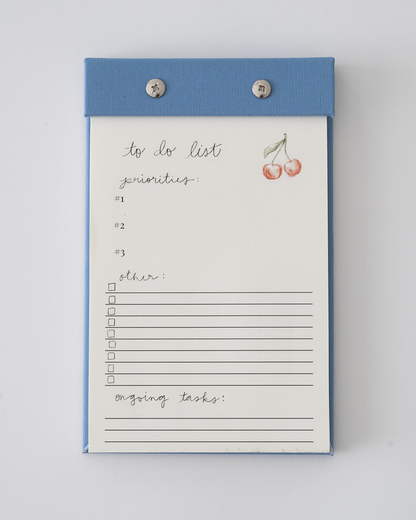 to do list
priorities:
#1
#2
#3
other:
ongoing tasks: